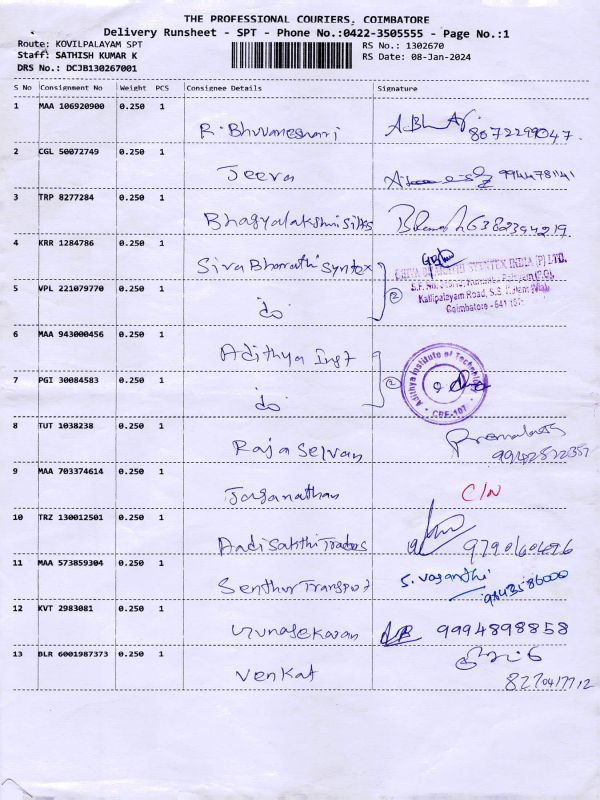 THE PROFESSIONAL COURIERS, COIMBATORE
Delivery Runsheet - SPT - Phone No.:0422-3505555 - Page No.:1
Route: KOVILPALAYAM SPT
RS No.: 1302670
Staff: SATHISH KUMAR K
RS Date: 08-Jan-2024
DRS No.: DCJB130267001
S No Consignment No Weight PCS Consignee Details Signature
1 MAA 106920900 0.250 1 R. Bhuvaneswari 8072299047
2 CGL 50072749 0.250 1 Jeeva 9944781141
3 TRP 8277284 0.250 1 Bhagyalakshmi 6382394219
4 KRR 1284786 0.250 1 Siva Bharathi Syntex
SHIVA BHARATHI SYNTEX INDIA (P) LTD.
5 VPL 221079770 0.250 1 do 2
Kallipalayam Road, S.S. Kulam (Via)
Coimbatore - 641 107
6 MAA 943000456 0.250 1 Adithya Inst
Adithya Institute of Technology
7 PGI 30084583 0.250 1 do 2
CBE-107
8 TUT 1038238 0.250 1 Raja Selvan Premalatha
9 MAA 703374614 0.250 1 Jaganathan C/N
10 TRZ 130012501 0.250 1 Aadi Sakthi Traders 9790160496
11 MAA 573859304 0.250 1 Senthur Transport S. Vasanthi
9843586000
12 KVT 2983081 0.250 1 Gunasekaran 9994898858
13 BLR 6001987373 0.250 1 Venkat
8270417712